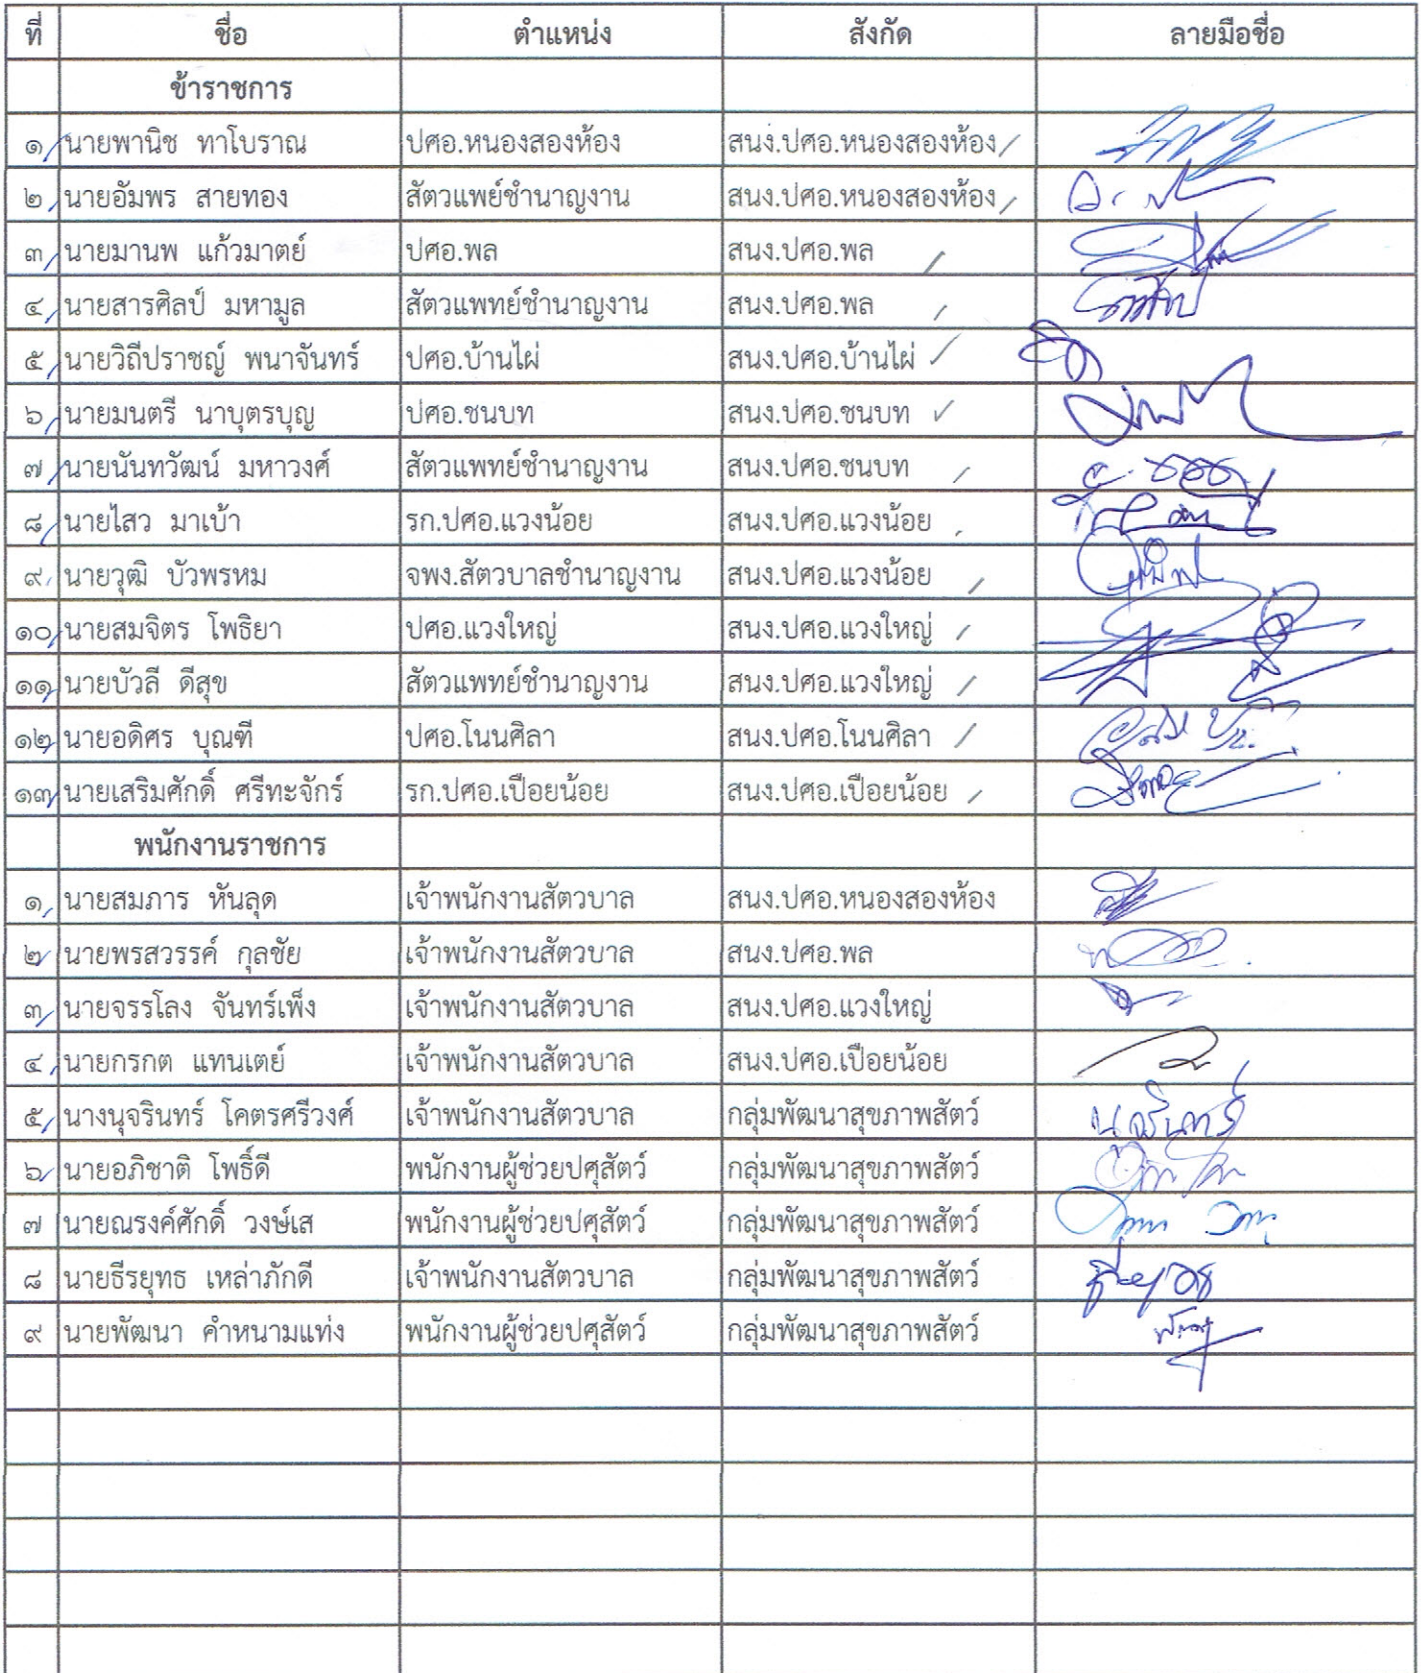 ที่ ชื่อ ตำแหน่ง สังกัด ลายมือชื่อ
ข้าราชการ
๑ นายพานิช ทาโบราณ ปศอ.หนองสองห้อง สนง.ปศอ.หนองสองห้อง
๒ นายอัมพร สายทอง สัตวแพย์ชำนาญงาน สนง.ปศอ.หนองสองห้อง
๓ นายมานพ แก้วมาตย์ ปศอ.พล สนง.ปศอ.พล
๔ นายสารศิลป์ มหามูล สัตวแพทย์ชำนาญงาน สนง.ปศอ.พล
๕ นายวิถีปราชญ์ พนาจันทร์ ปศอ.บ้านไผ่ สนง.ปศอ.บ้านไผ่
๖ นายมนตรี นาบุตรบุญ ปศอ.ชนบท สนง.ปศอ.ชนบท
๗ นายนันทวัฒน์ มหาวงศ์ สัตวแพทย์ชำนาญงาน สนง.ปศอ.ชนบท
๘ นายไสว มาเบ้า รก.ปศอ.แวงน้อย สนง.ปศอ.แวงน้อย
๙ นายวุฒิ บัวพรหม จพง.สัตวบาลชำนาญงาน สนง.ปศอ.แวงน้อย
๑๐ นายสมจิตร โพธิยา ปศอ.แวงใหญ่ สนง.ปศอ.แวงใหญ่
๑๑ นายบัวลี ดีสุข สัตวแพทย์ชำนาญงาน สนง.ปศอ.แวงใหญ่
๑๒ นายอดิศร บุณฑี ปศอ.โนนศิลา สนง.ปศอ.โนนศิลา
๑๓ นายเสริมศักดิ์ ศรีทะจักร์ รก.ปศอ.เปือยน้อย สนง.ปศอ.เปือยน้อย
พนักงานราชการ
๑ นายสมภาร หันลุด เจ้าพนักงานสัตวบาล สนง.ปศอ.หนองสองห้อง
๒ นายพรสวรรค์ กุลชัย เจ้าพนักงานสัตวบาล สนง.ปศอ.พล
๓ นายจรรโลง จันทร์เพ็ง เจ้าพนักงานสัตวบาล สนง.ปศอ.แวงใหญ่
๔ นายกรกต แทนเตย์ เจ้าพนักงานสัตวบาล สนง.ปศอ.เปือยน้อย
๕ นางนุจรินทร์ โคตรศรีวงศ์ เจ้าพนักงานสัตวบาล กลุ่มพัฒนาสุขภาพสัตว์ นุจรินทร์
๖ นายอภิชาติ โพธิ์ดี พนักงานผู้ช่วยปศุสัตว์ กลุ่มพัฒนาสุขภาพสัตว์
๗ นายณรงค์ศักดิ์ วงษ์เส พนักงานผู้ช่วยปศุสัตว์ กลุ่มพัฒนาสุขภาพสัตว์
๘ นายธีรยุทธ เหล่าภักดี เจ้าพนักงานสัตวบาล กลุ่มพัฒนาสุขภาพสัตว์
๙ นายพัฒนา คำหนามแท่ง พนักงานผู้ช่วยปศุสัตว์ กลุ่มพัฒนาสุขภาพสัตว์